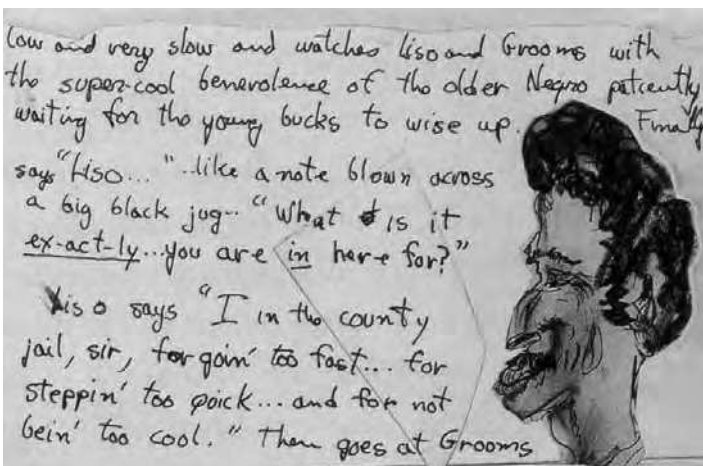 low and very slow and watches Liso and Grooms with
the super-cool benevolence of the older Negro patiently
waiting for the young bucks to wise up. Finally
says "Liso..." ..like a note blown across
a big black jug.. "What is it
ex-act-ly...you are in here for?"
Liso says "I in the county
jail, sir, for goin' too fast... for
steppin' too quick... and for not
bein' too cool." Then goes at Grooms